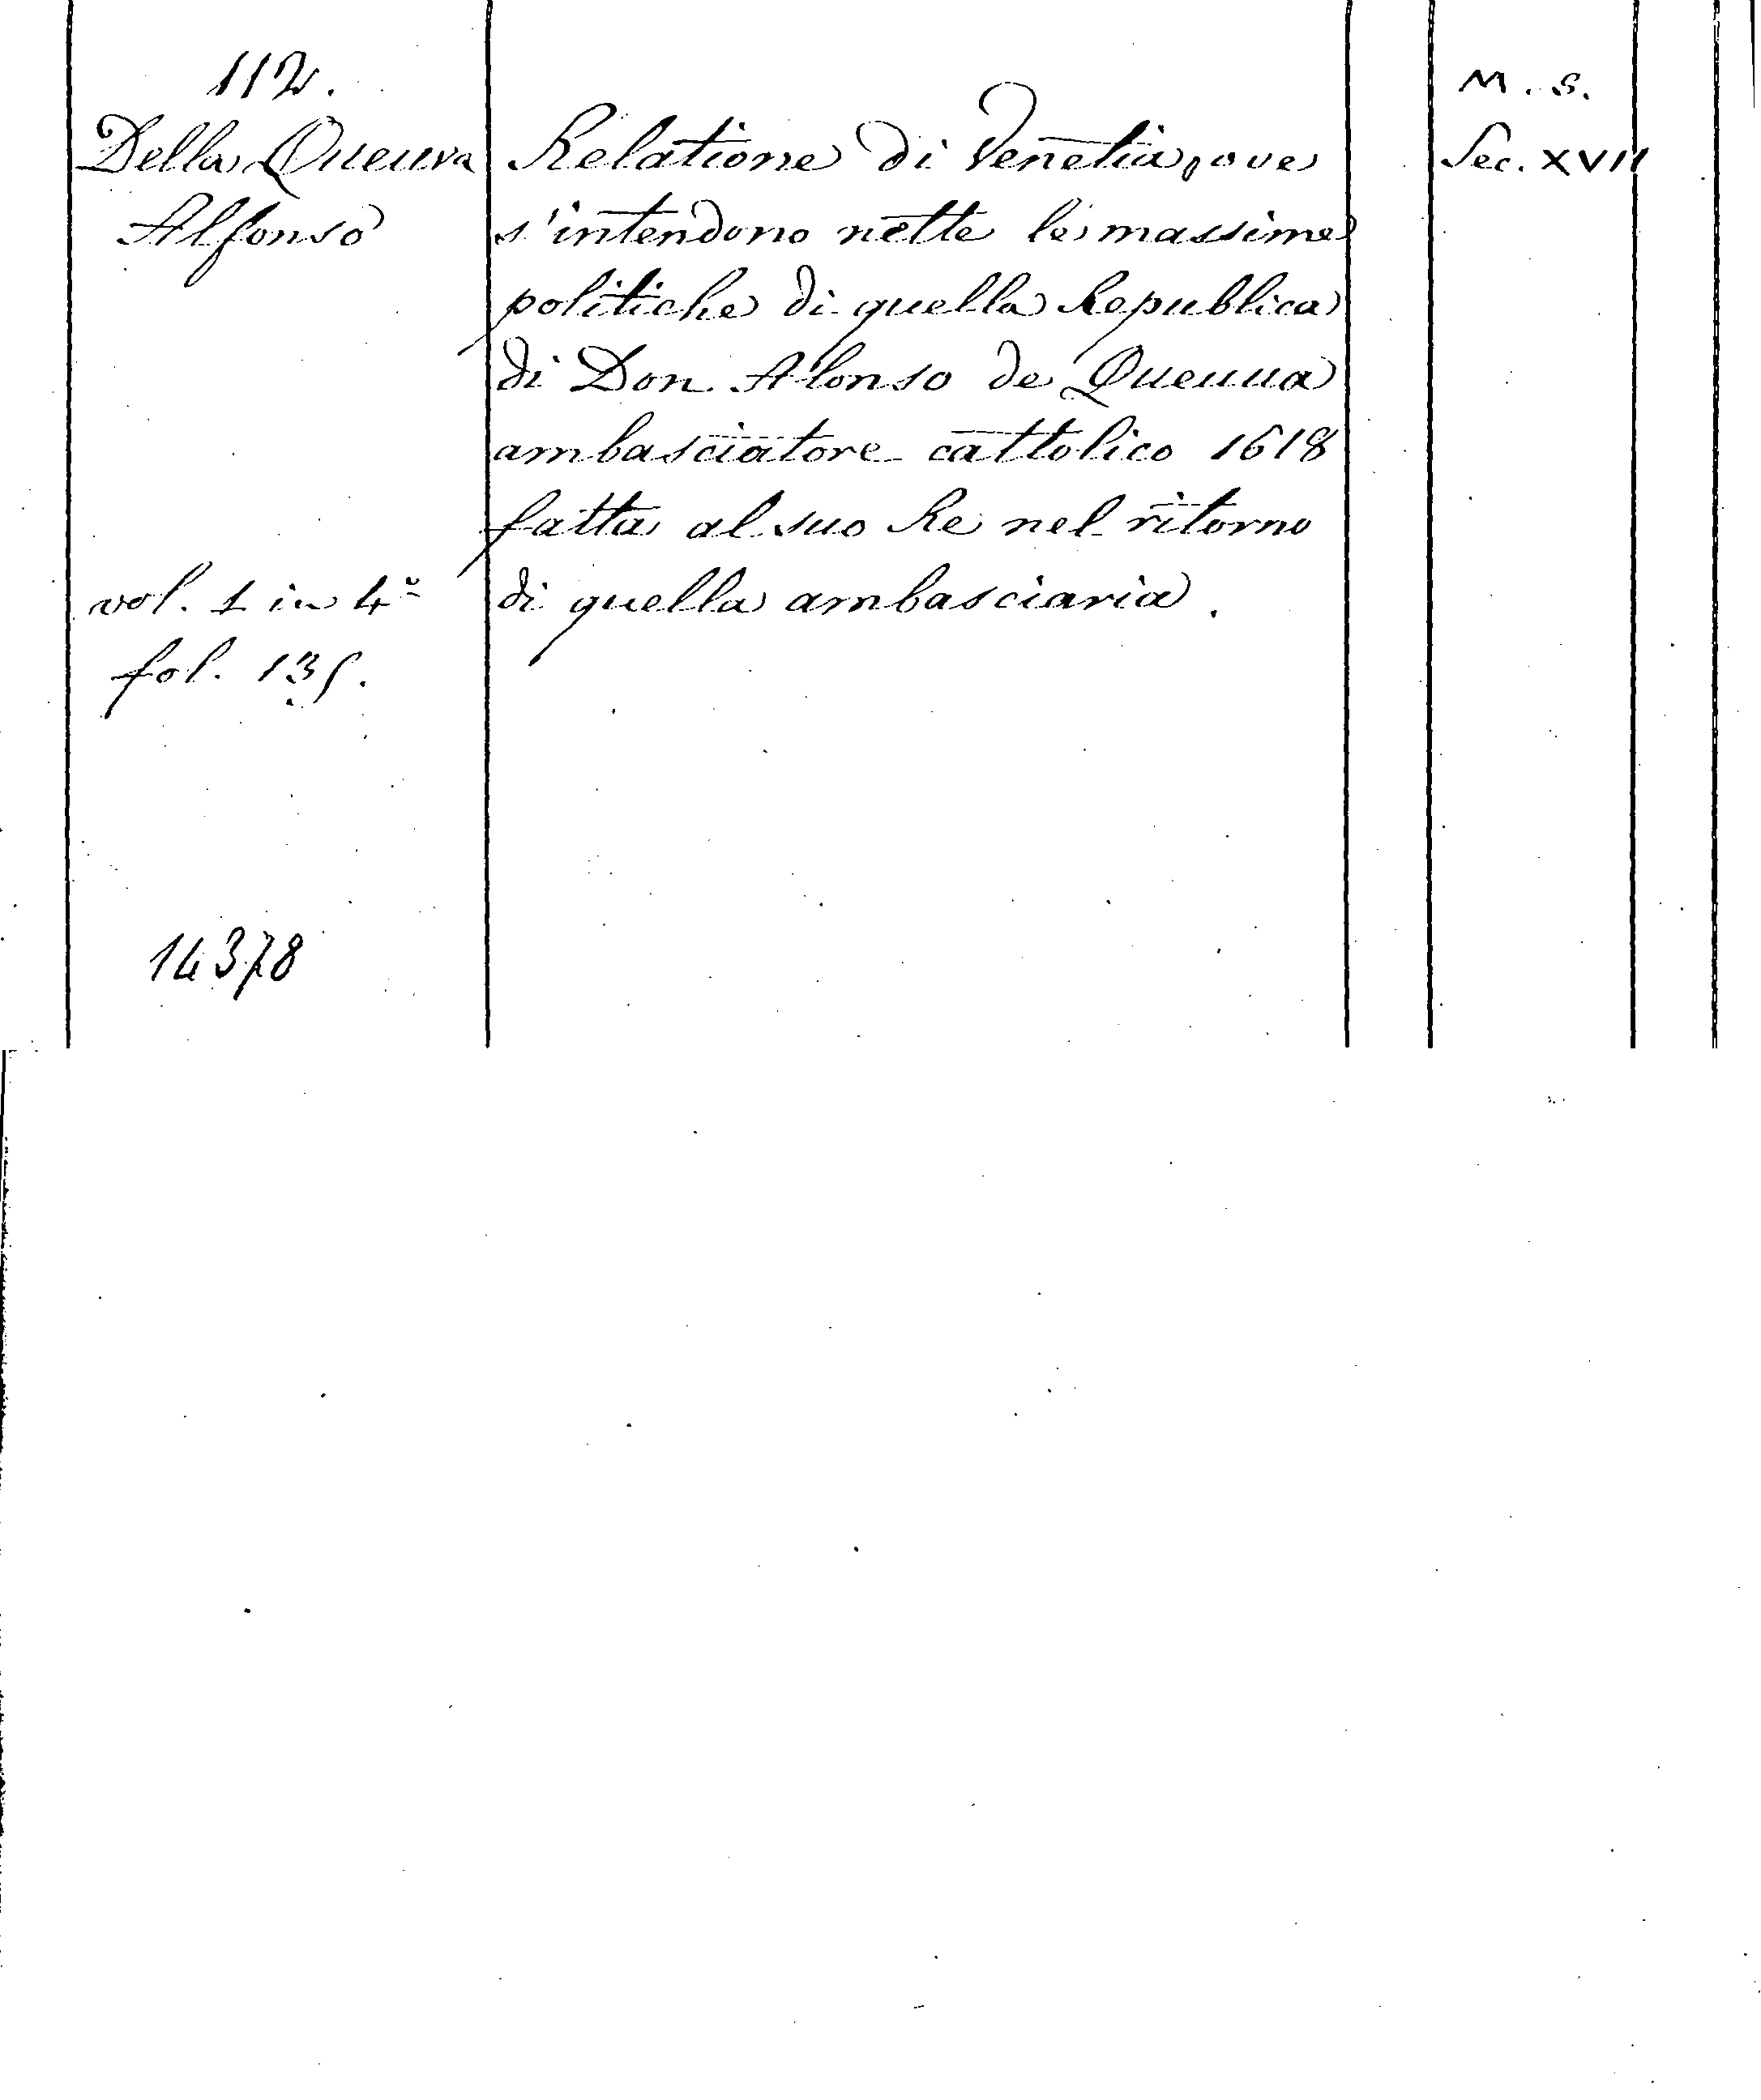 112.
Della Queuva
Alfonso
vol. 1 in 4º
fol. 135.
14378
Relatione di Venetia, ove
s'intendono nette le massime
politiche di quella Republica
di Don Alonso de Queuua
ambasciatore cattolico 1618
fatta al suo Re nel ritorno
di quella ambasciaria.
M. S.
Sec. XVII